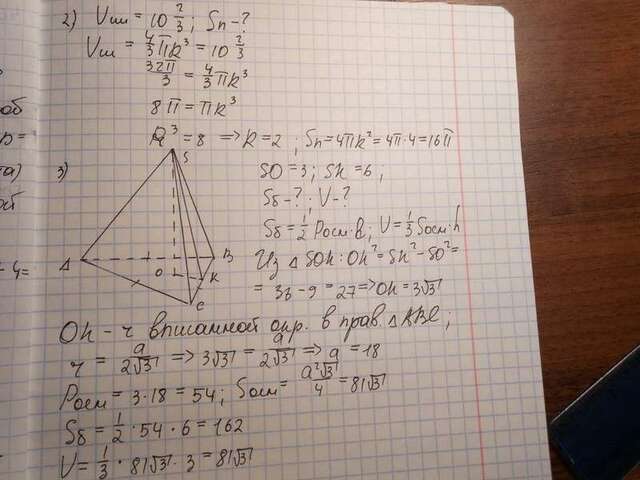 2) Vш = 10 2/3 ; Sп - ?
Vш = 4/3 πR³ = 10 2/3
32π/3 = 4/3 πR³
8π = πR³
R³ = 8 => R = 2 ; Sп = 4πR² = 4π·4 = 16π
3)
SO = 3 ; SK = 6 ;
Sб - ? ; V - ?
Sб = 1/2 Pосн·l ; V = 1/3 Sосн·h
Из △ SOK : OK² = SK² - SO² =
= 36 - 9 = 27 => OK = 3√3
S
A
B
O
K
C
OK - r вписанной окр. в прав. △ ABC ;
r = a/2√3 => 3√3 = a/2√3 => a = 18
Pосн = 3·18 = 54 ; Sосн = a²√3/4 = 81√3
Sб = 1/2 · 54 · 6 = 162
V = 1/3 · 81√3 · 3 = 81√3
об
та)
ой
4=